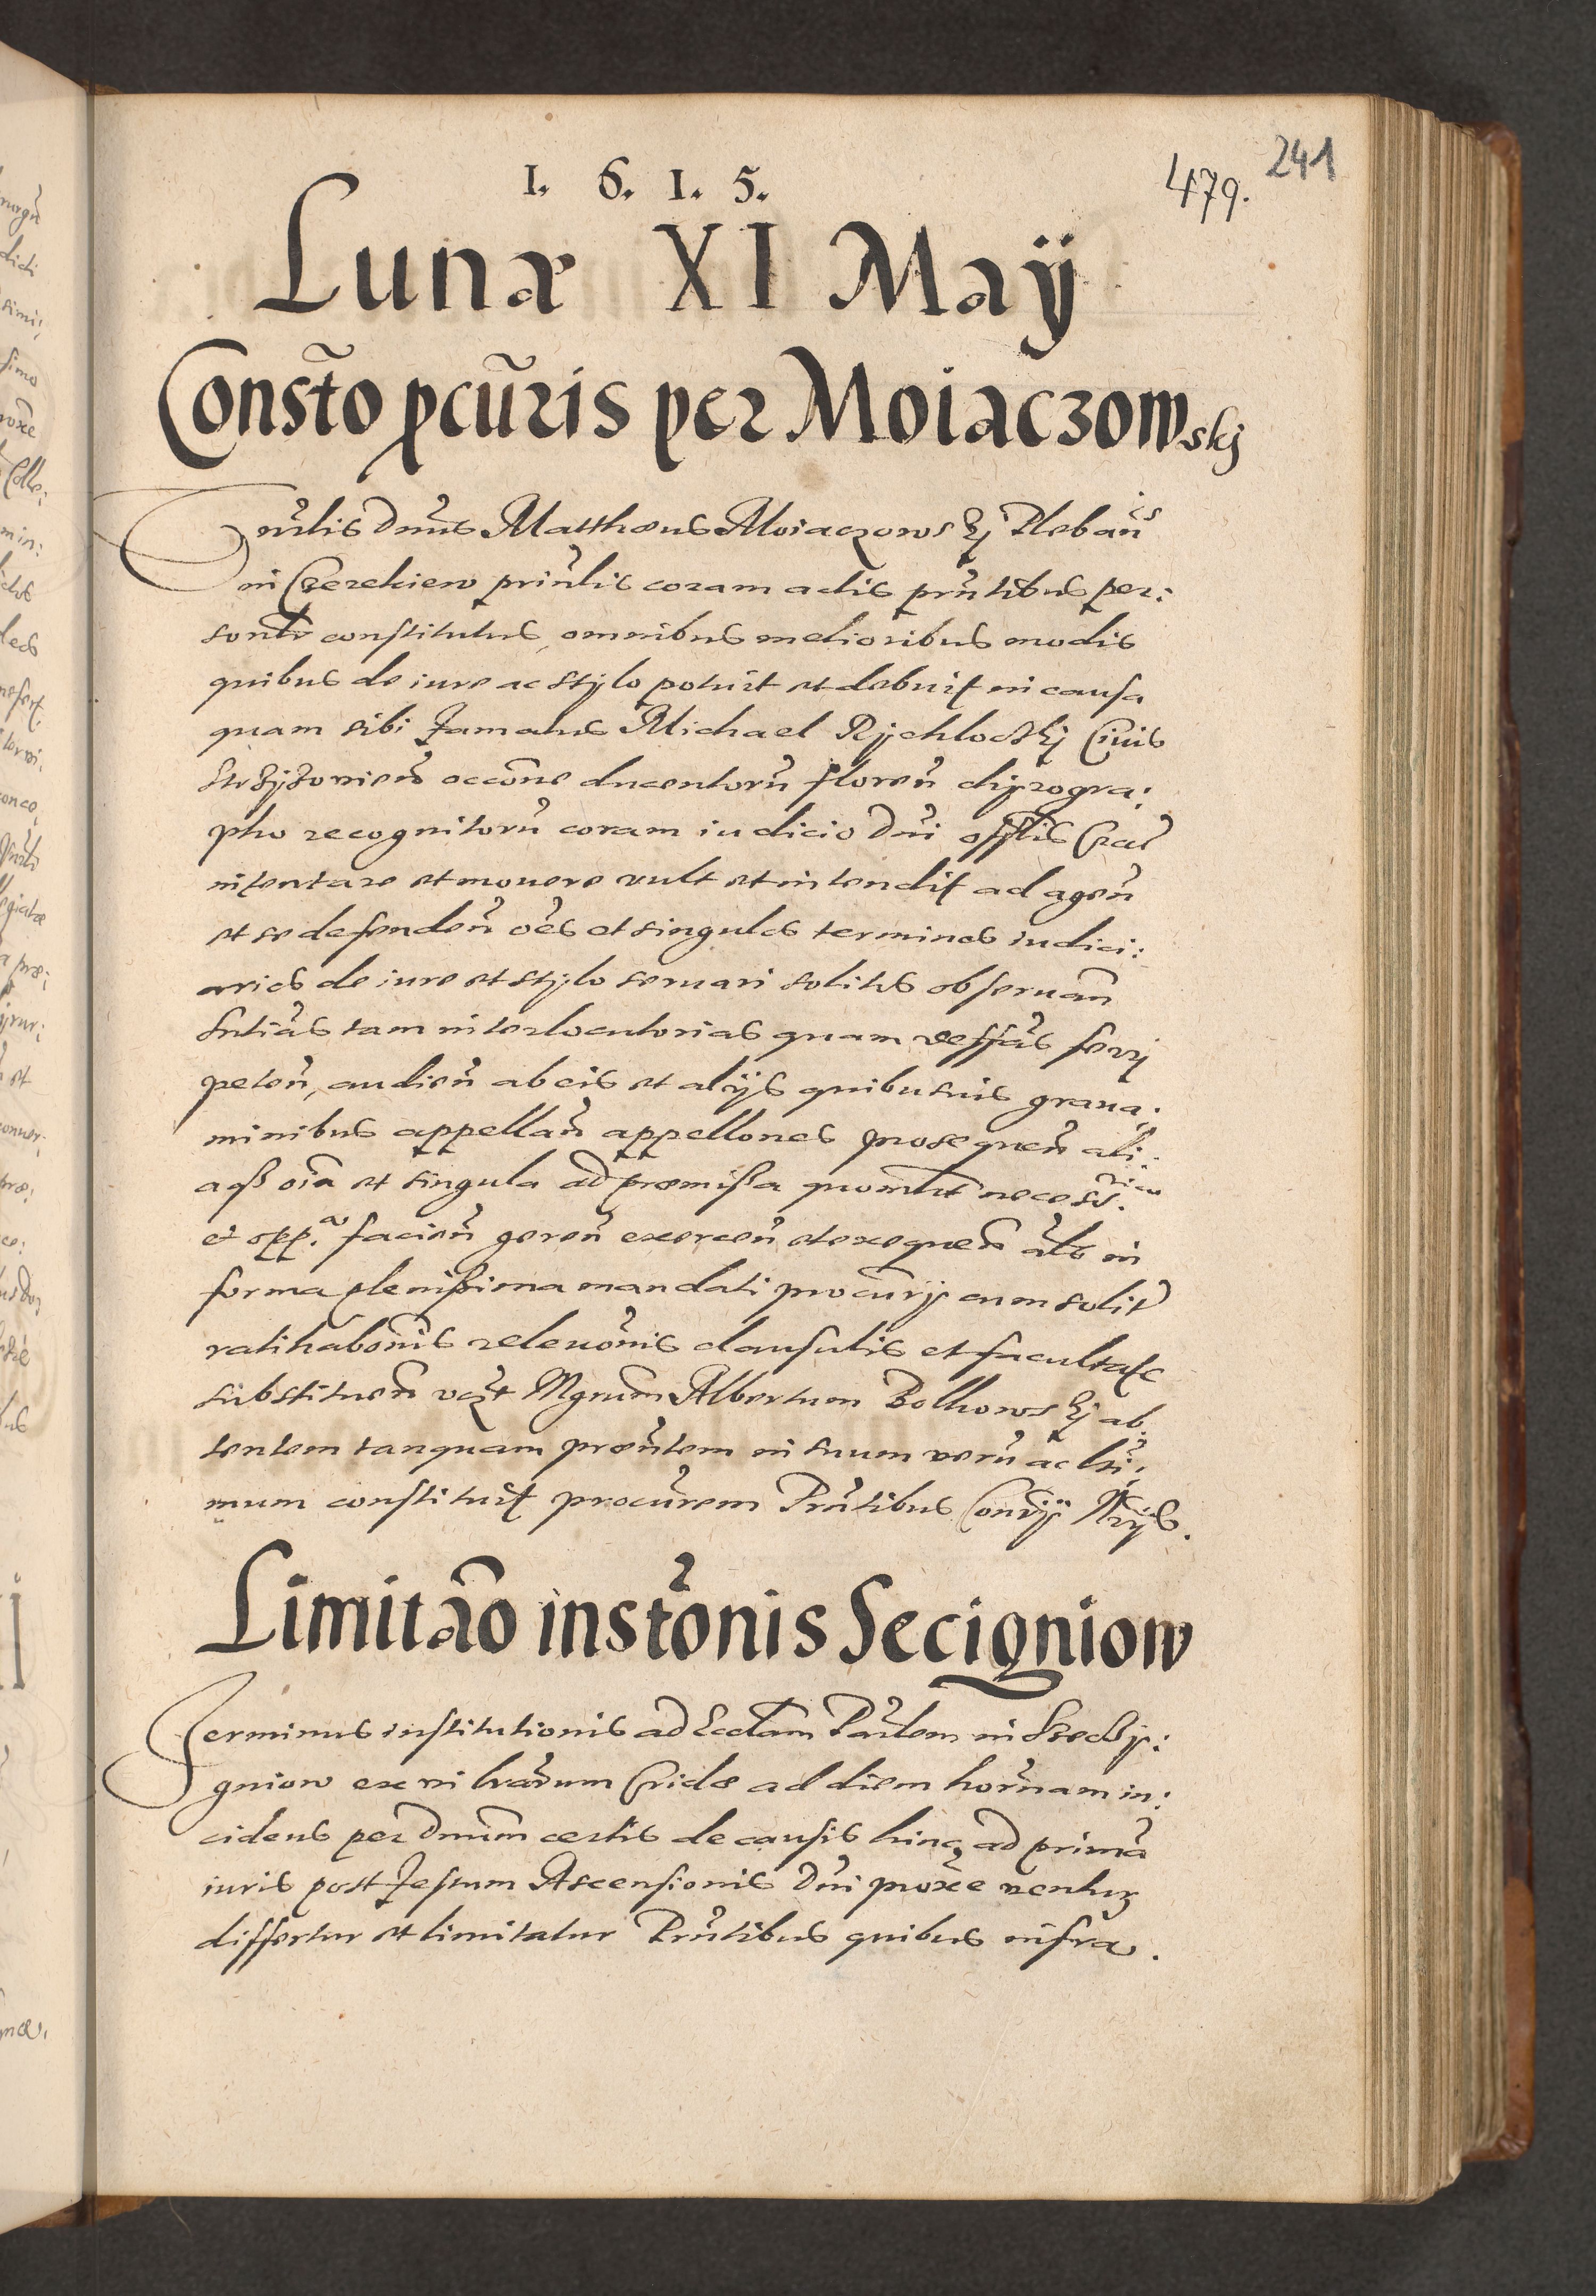 1. 6. 1. 5.
479. 241
Lunæ XI Maij
Constō pcūris per Moiaczowskj
Vnrlis Dnus Matthæus Moiaczowskj Pleban9
in Czerekiew prinlis coram actis pñtibus per:
sonlr constitutus, omnibus melioribus modis
quibus de iure ac stylo potuit et debuit in causa
quam sibi famatus Michael Rychlockj Ciuis
occõne ducentorũ floreñ chyrogra:
pho recognitorũ coram iudicio Dñi offlis Crac
intentare et mouere vult et intendit ad ageñ
et se defendeñ oẽs et singulos terminos iudici:
arios de iure et stylo seruari solitos obseruañ
sntias tam interlocutorias quam deffãs ferrj
peteñ, audieñ ab eis et alijs quibusuis graua:
minibus appellañ appellones prosequeñ ali:
aqß oĩa et singula ad præmißa quomlt necess.ria
et opp.a facieñ gereñ exerceñ et exequeñ alr in
forma plenißima mandati procurij cum solit
ratihabõnis releuõnis clausulis et facultate
substitueñ vczt Mgrum Albertum Bolhowskj ab
sentem tanquam præñtem in suum verũ ac ltti:
mum constituit procũrem Pñtibus Conrij Nrijs.
Limitão instõnis Secigniow
Terminus institutionis ad Ecclam Parlem in Szeczy:
gniow ex vi lrarum Cridæ ad diem hornam in:
cidens per Dnum certis de causis hinc ad primã
iuris post festum Ascensionis Dñi proxẽ ventur
differtur et limitatur Pñtibus quibus infra.